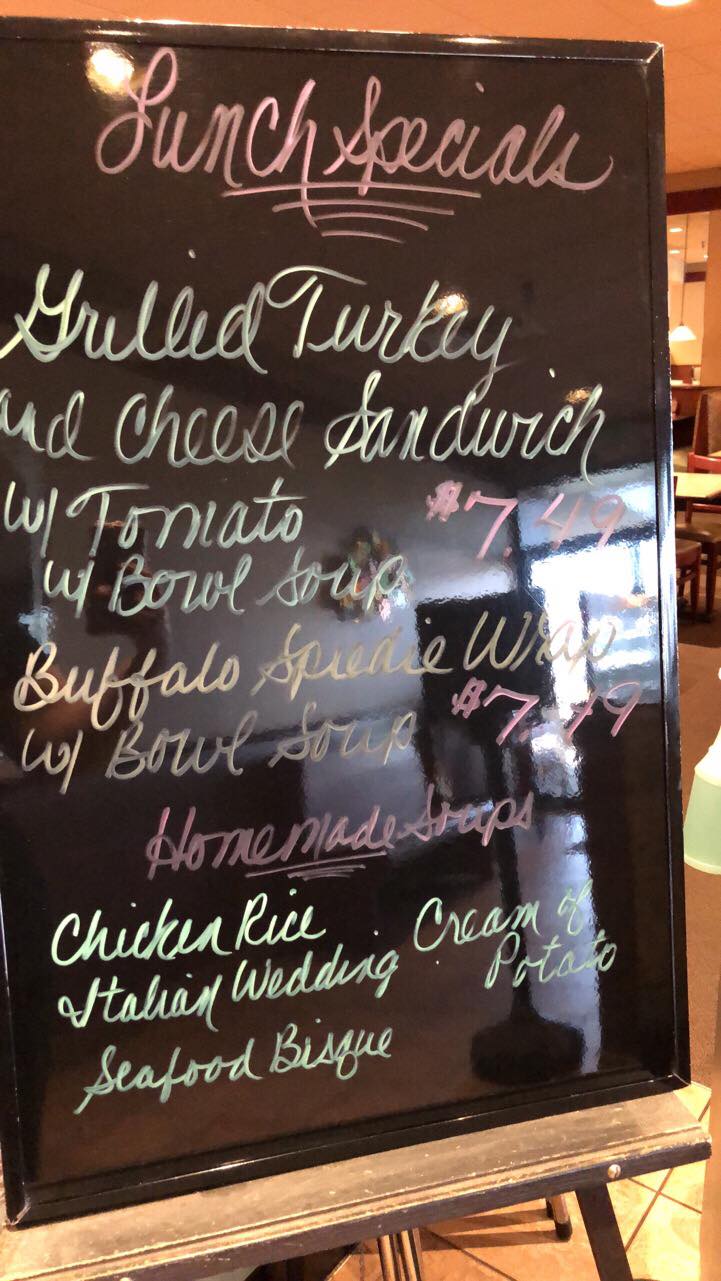 Lunch Specials
Grilled Turkey
and Cheese Sandwich
w/ Tomato $7.49
w/ Bowl Soup
Buffalo Spiedie Wrap
w/ Bowl Soup $7.49
Homemade Soups
Chicken Rice Cream of
Italian Wedding Potato
Seafood Bisque